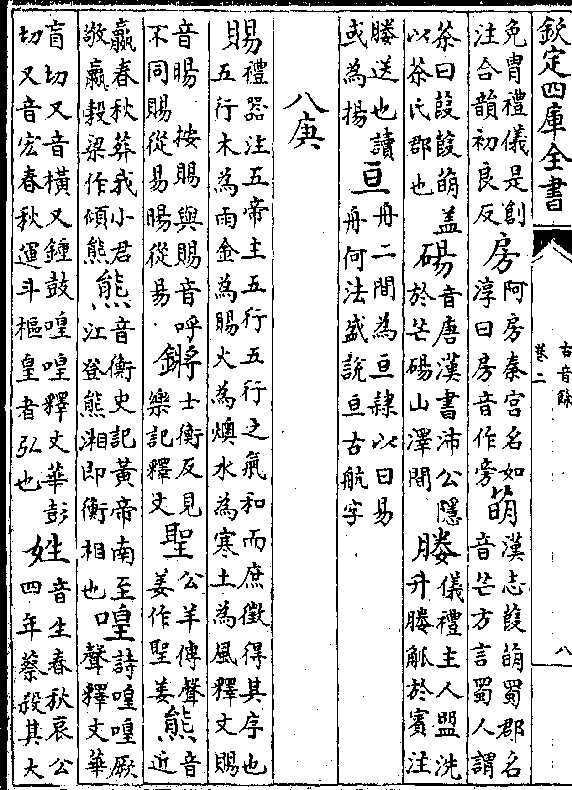 欽定四庫全書
古音餘
卷二
八
免胄禮儀是創注合韻初良反房阿房秦宮名如淳曰房音作旁萌漢志葭萌蜀郡名音芒方言蜀人謂
茶曰葭葭萌盖以茶氏郡也碭音唐漢書沛公隱於芒碭山澤間媵儀禮主人盟洗升媵觚於賓注
媵送也讀或為揚亘舟二間為亘隷以日易舟何法盛說亘古航字
八庚
賜禮器注五帝主五行五行之氣和而庶徵得其序也五行木為雨金為賜火為燠水為寒土為風釋文賜
音暘 按賜與賜音呼不同賜從易暘從昜鏘士衡反見樂記釋文聖公羊傳聲姜作聖姜熊音近
嬴春秋葬我小君敬嬴穀梁作頃熊熊音衡史記黄帝南至江登熊湘即衡相也喤詩喤喤厥聲釋文華
盲切又音橫又鍾鼓喤喤釋文華彭切又音宏春秋運斗樞皇者弘也姓音生春秋哀公四年蔡殺其大